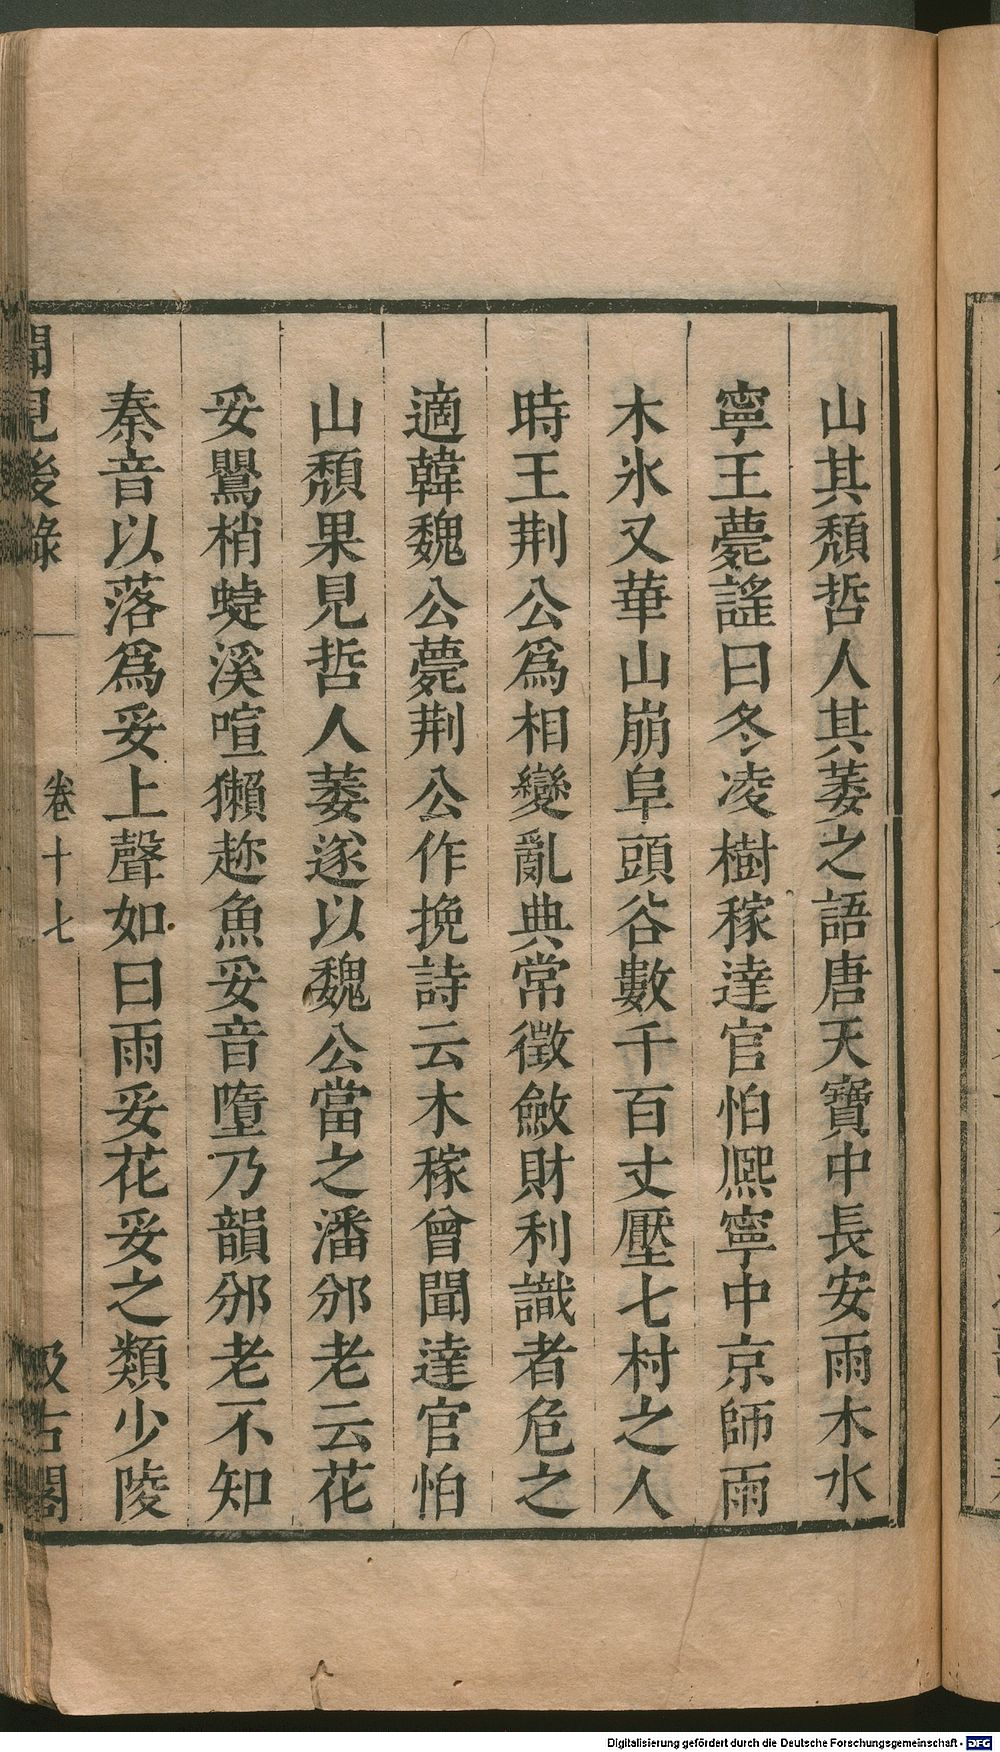 山其頹哲人其萎之語唐天寶中長安雨木水
寧王薨謡曰冬凌樹稼達官怕熈寧中京師雨
木氷又華山崩阜頭谷數千百丈壓七村之人
時王荆公爲相變亂典常徵斂財利識者危之
適韓魏公薨荆公作挽詩云木稼曾聞達官怕
山頹果見哲人萎遂以魏公當之潘邠老云花
妥鸎梢蜨溪喧獺趂魚妥音墮乃韻邠老不知
秦音以落爲妥上聲如曰雨妥花妥之類少陵
聞見後錄
卷十七
汲古閣
Digitalisierung gefördert durch die Deutsche Forschungsgemeinschaft - DFG